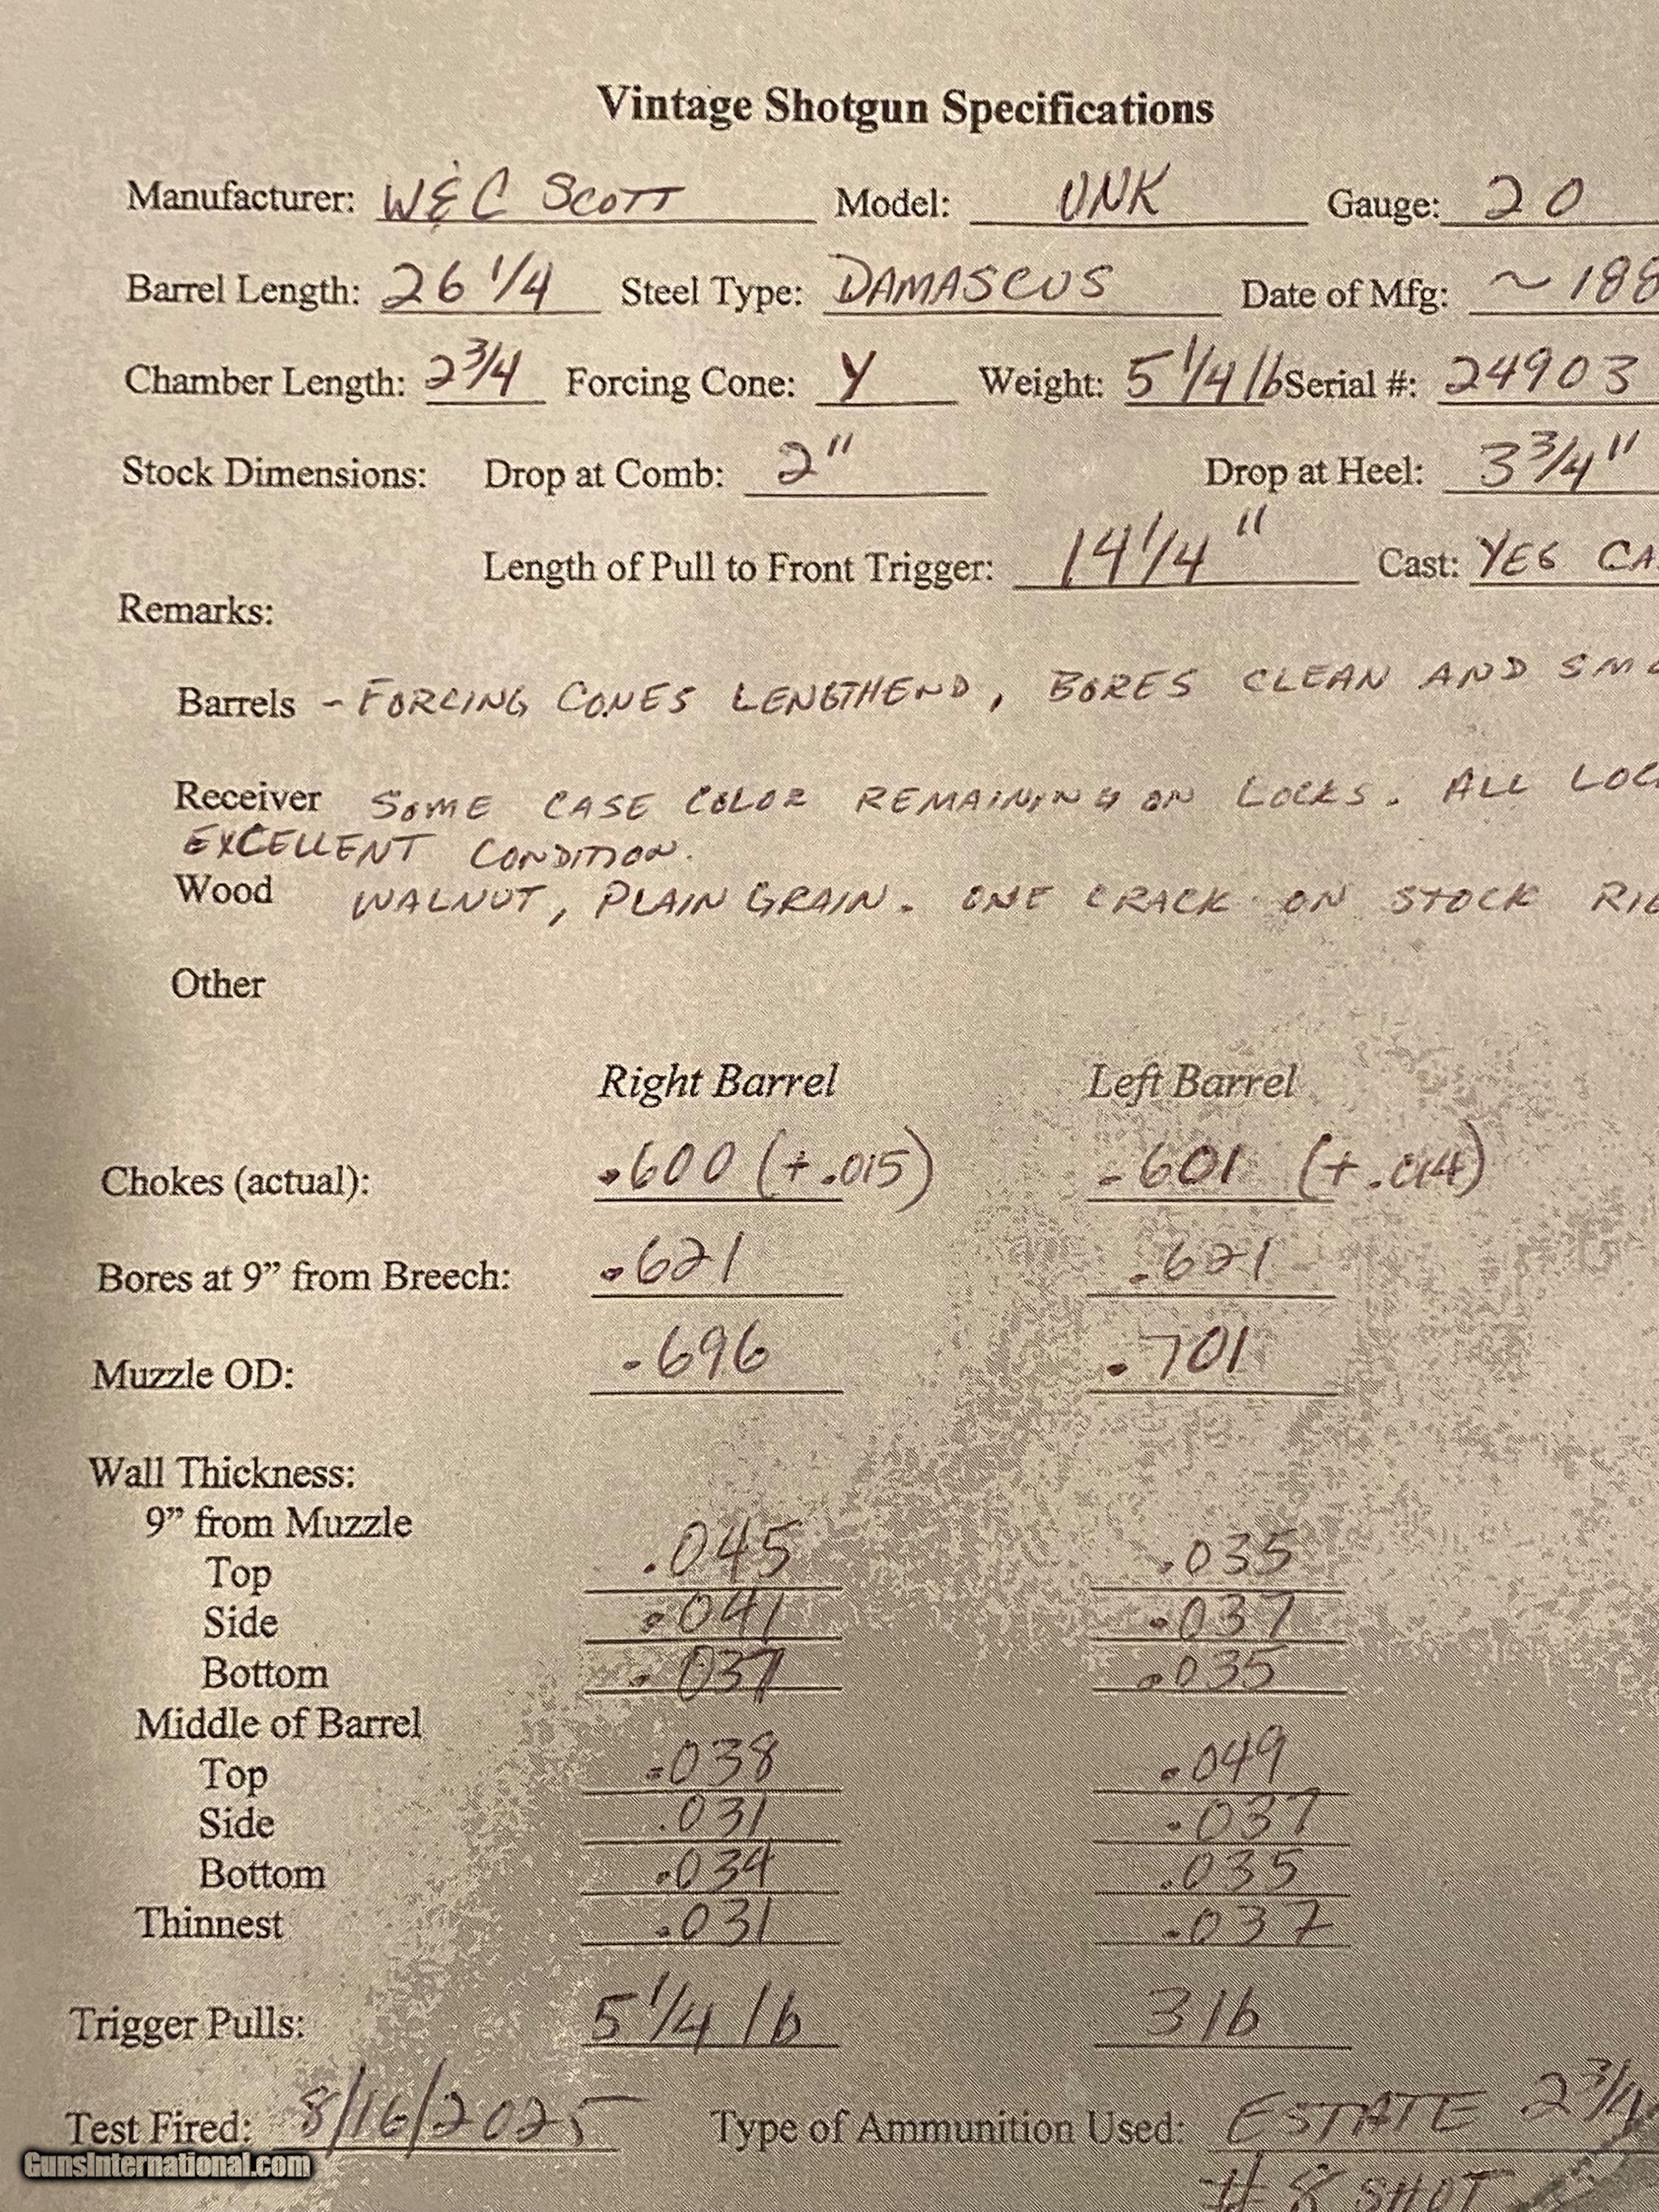 Vintage Shotgun Specifications
Manufacturer: W&C SCOTT Model: UNK Gauge: 20
Barrel Length: 26 1/4 Steel Type: DAMASCUS Date of Mfg: ~ 188
Chamber Length: 2 3/4 Forcing Cone: Y Weight: 5 1/4 lb Serial #: 24903
Stock Dimensions: Drop at Comb: 2" Drop at Heel: 3 3/4"
Length of Pull to Front Trigger: 14 1/4" Cast: YES CA
Remarks:
Barrels - FORCING CONES LENGTHEND, BORES CLEAN AND SM
Receiver SOME CASE COLOR REMAINING ON LOCKS. ALL LOC
EXCELLENT CONDITION.
Wood WALNUT, PLAIN GRAIN. ONE CRACK ON STOCK RIG
Other
Right Barrel Left Barrel
Chokes (actual): .600 (+.015) .601 (+.014)
Bores at 9” from Breech: .621 .621
Muzzle OD: .696 .701
Wall Thickness:
9” from Muzzle
Top .045 .035
Side .041 .037
Bottom .037 .035
Middle of Barrel
Top .038 .049
Side .031 .037
Bottom .034 .035
Thinnest .031 .037
Trigger Pulls: 5 1/4 lb 3 lb
Test Fired: 8/16/2025 Type of Ammunition Used: ESTATE 2 3/4
# 8 SHOT
GunsInternational.com